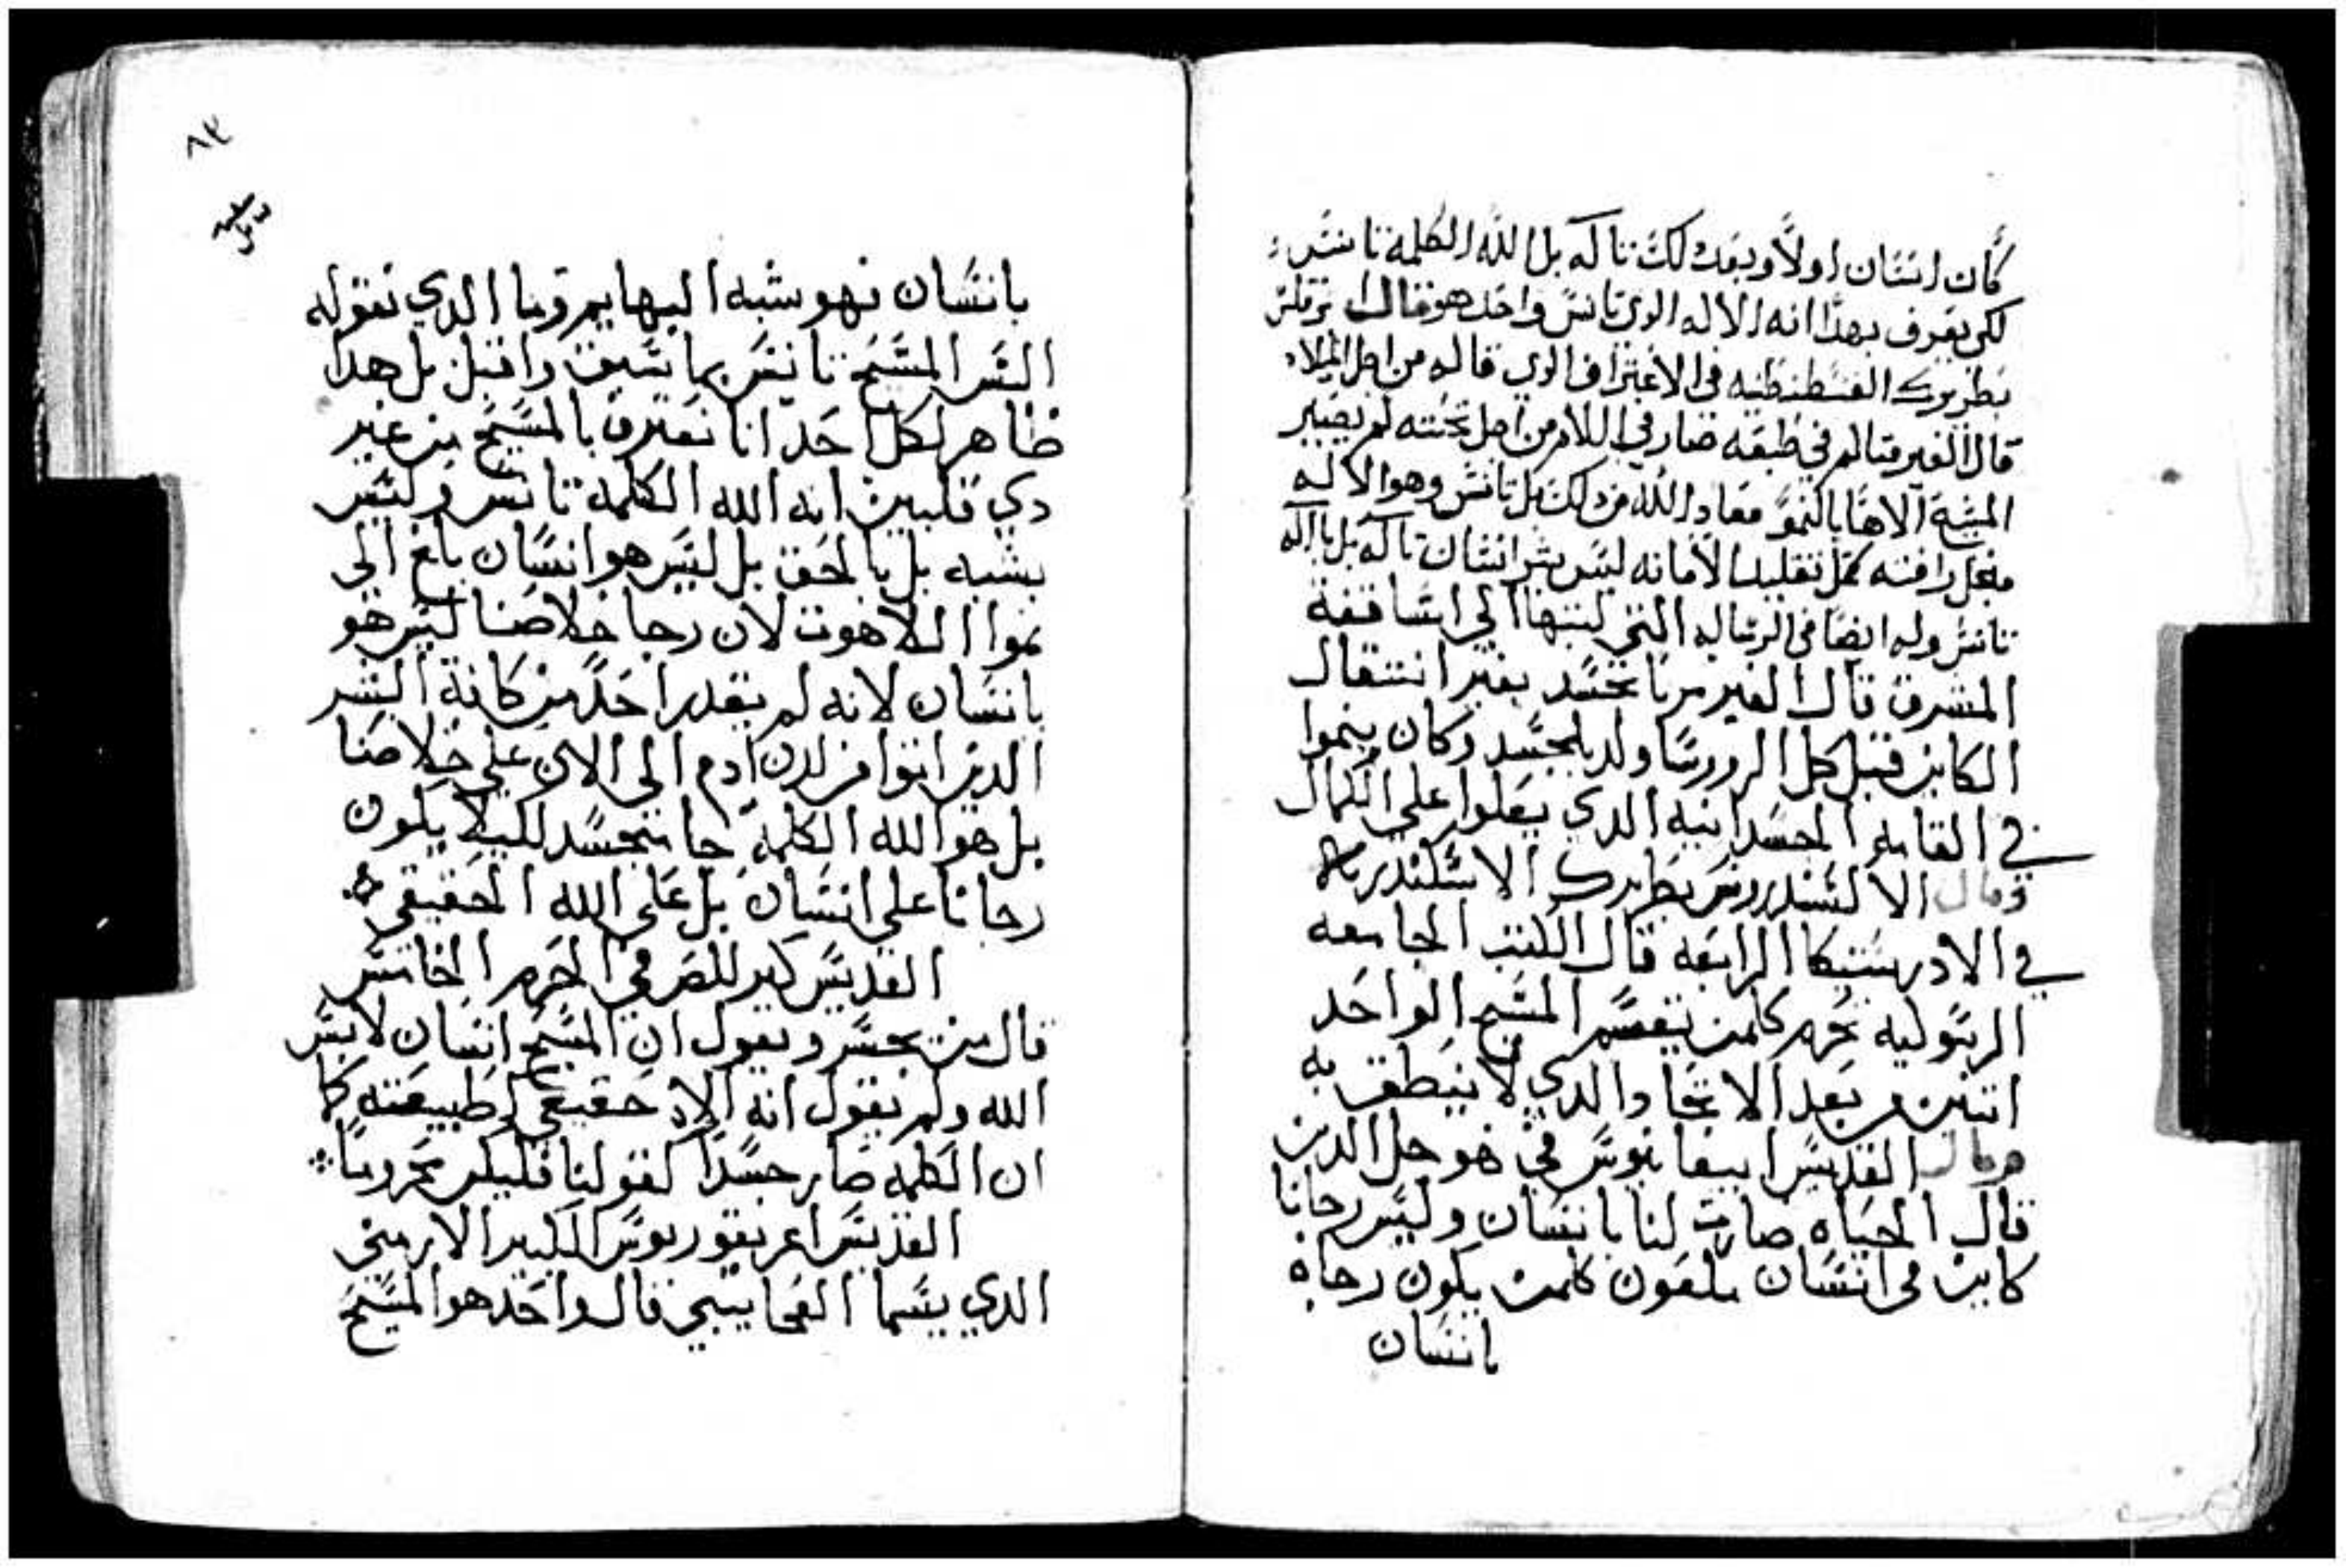 كان انسان اولاً وبعد دلك تاله بل الله الكلمة تانس
لكي يعرف بهدا انه الاله الدي تانس واحد هو قال ابرقلس
بطريرك القسطنطنيه في الاعتراف الدي قاله من اجل الميلاد
قال الغير متالم في طبعه صار في اللالام من اجل تحننه لم يصير
المسيح الاهاً بالنمو معاد الله من دلك بل تانس وهو الاله
من اجل رافته كمل تقليد الامانه ليس بشر انسان تاله بل بااله
تانس وله ايضا في الرساله التي كتبها الي اساقفة
المشرق قال الغير مرىا تجسد بغير انتقال
الكاين قبل كل الدهور ولد بالجسد وكان ينموا
في القامه الجسدانيه الدي يعلوا علي الكمال
وقال الالكسندروس بطريرك الاسكندريه
في الادرستيكا الرابعه قال الكتب الجامعه
الرسوليه تحرم كلمن يقسم المسيح الواحد
اتنين من بعد الاتحاد الدي لا ينطق به
وقال القديس ابيفانيوس في هو جل الدين
قال الحياه صارت لنا بانسان وليس رجانا
كاين في انسان ملعون كلمن يكون رجاه
بانسان
٨٤
بانسان فهو شبه البهايم وما الدي نقوله
اليس المسيح تانس بما سبق واقبل بل هدا
ظاهر لكل احد انا نعترف بالمسيح من غير
دي قلبين انه الله الكلمه تانس وليس
بشبه بل بالحق بل ليس هو انسان بلغ الي
نموا اللاهوت لان رجا خلاصنا ليس هو
بانسان لانه لم يقدر احدً من كافة البشر
الدين اتوا من لدن ادم الي الان علي خلاصنا
بل هو الله الكلمه جا متجسد لكيلا يكون
رجانا علي انسان بل علي الله الحقيقي
القديس كيرللص في الحرم الخامس
قال من يجسر ويقول ان المسيح انسان لابس
الله ولم يقول انه الاه حقيقي لطبيعته كما
ان الكلمه صار جسداً كقولنا فليكن محروماً
القديس اغريغوريوس الكبير الارمني
الدي يسما العجايبي قال واحد هو المسيح